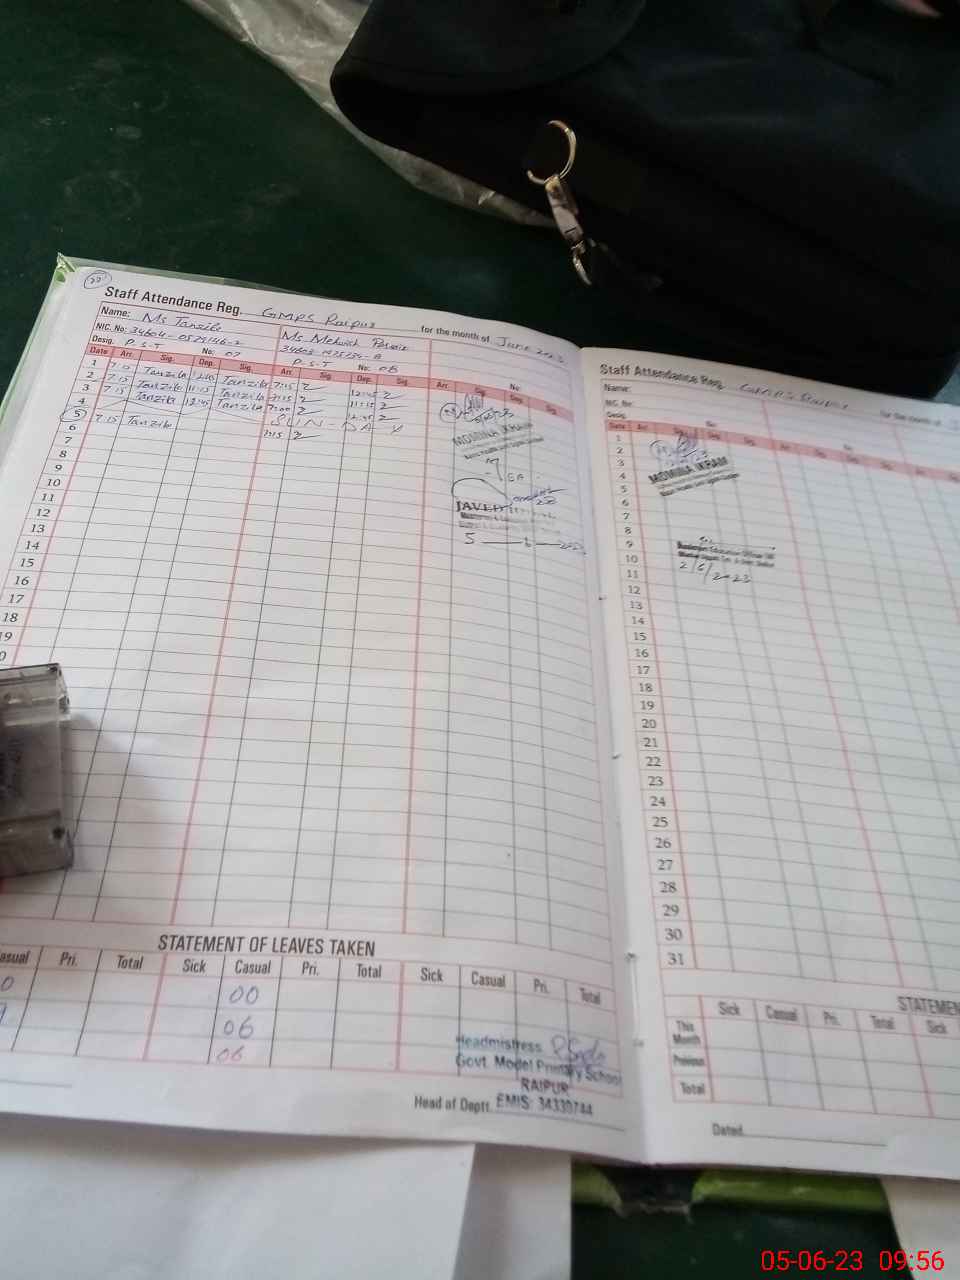 Staff Attendance Reg. GMPS Raipur for the month of June 2023
Name: Ms Tanzila
Ms Mehwish
NIC. No:
Desig. P.S.T No: 07
P.S.T No: 08
Date Arr. Sig. Dep. Sig. Arr. Sig. Dep. Sig. Arr. Sig. Dep. Sig.
1 7:15 Tanzila 12:45 Tanzila 7:15 12:45
2 7:15 Tanzila 11:15 Tanzila 7:15 11:15
3 7:15 Tanzila 12:45 Tanzila 7:00 12:45
4 SUN-DAY
5 7:15 Tanzila 7:15
6
7
8
9
10
11
12
13
14
15
16
17
18
19
MOMINA IKRAM
JAVED
5 — 6 — 2023
STATEMENT OF LEAVES TAKEN
Casual Pri. Total Sick Casual Pri. Total Sick Casual Pri. Total
00
06
06
Headmistress
Govt. Model Primary School
RAIPUR
EMIS: 34330744
Head of Deptt.
Staff Attendance Reg. GMPS Raipur for the month of
Name:
NIC. No:
Desig.
Date Arr. Sig. Dep. Sig.
1
2
3
4
5
6
7
8
9
10
11
12
13
14
15
16
17
18
19
20
21
22
23
24
25
26
27
28
29
30
31
MOMINA IKRAM
2/6/2023
STATEMENT
Sick Casual Pri. Total Sick
This Month
Previous
Total
Dated
05-06-23 09:56